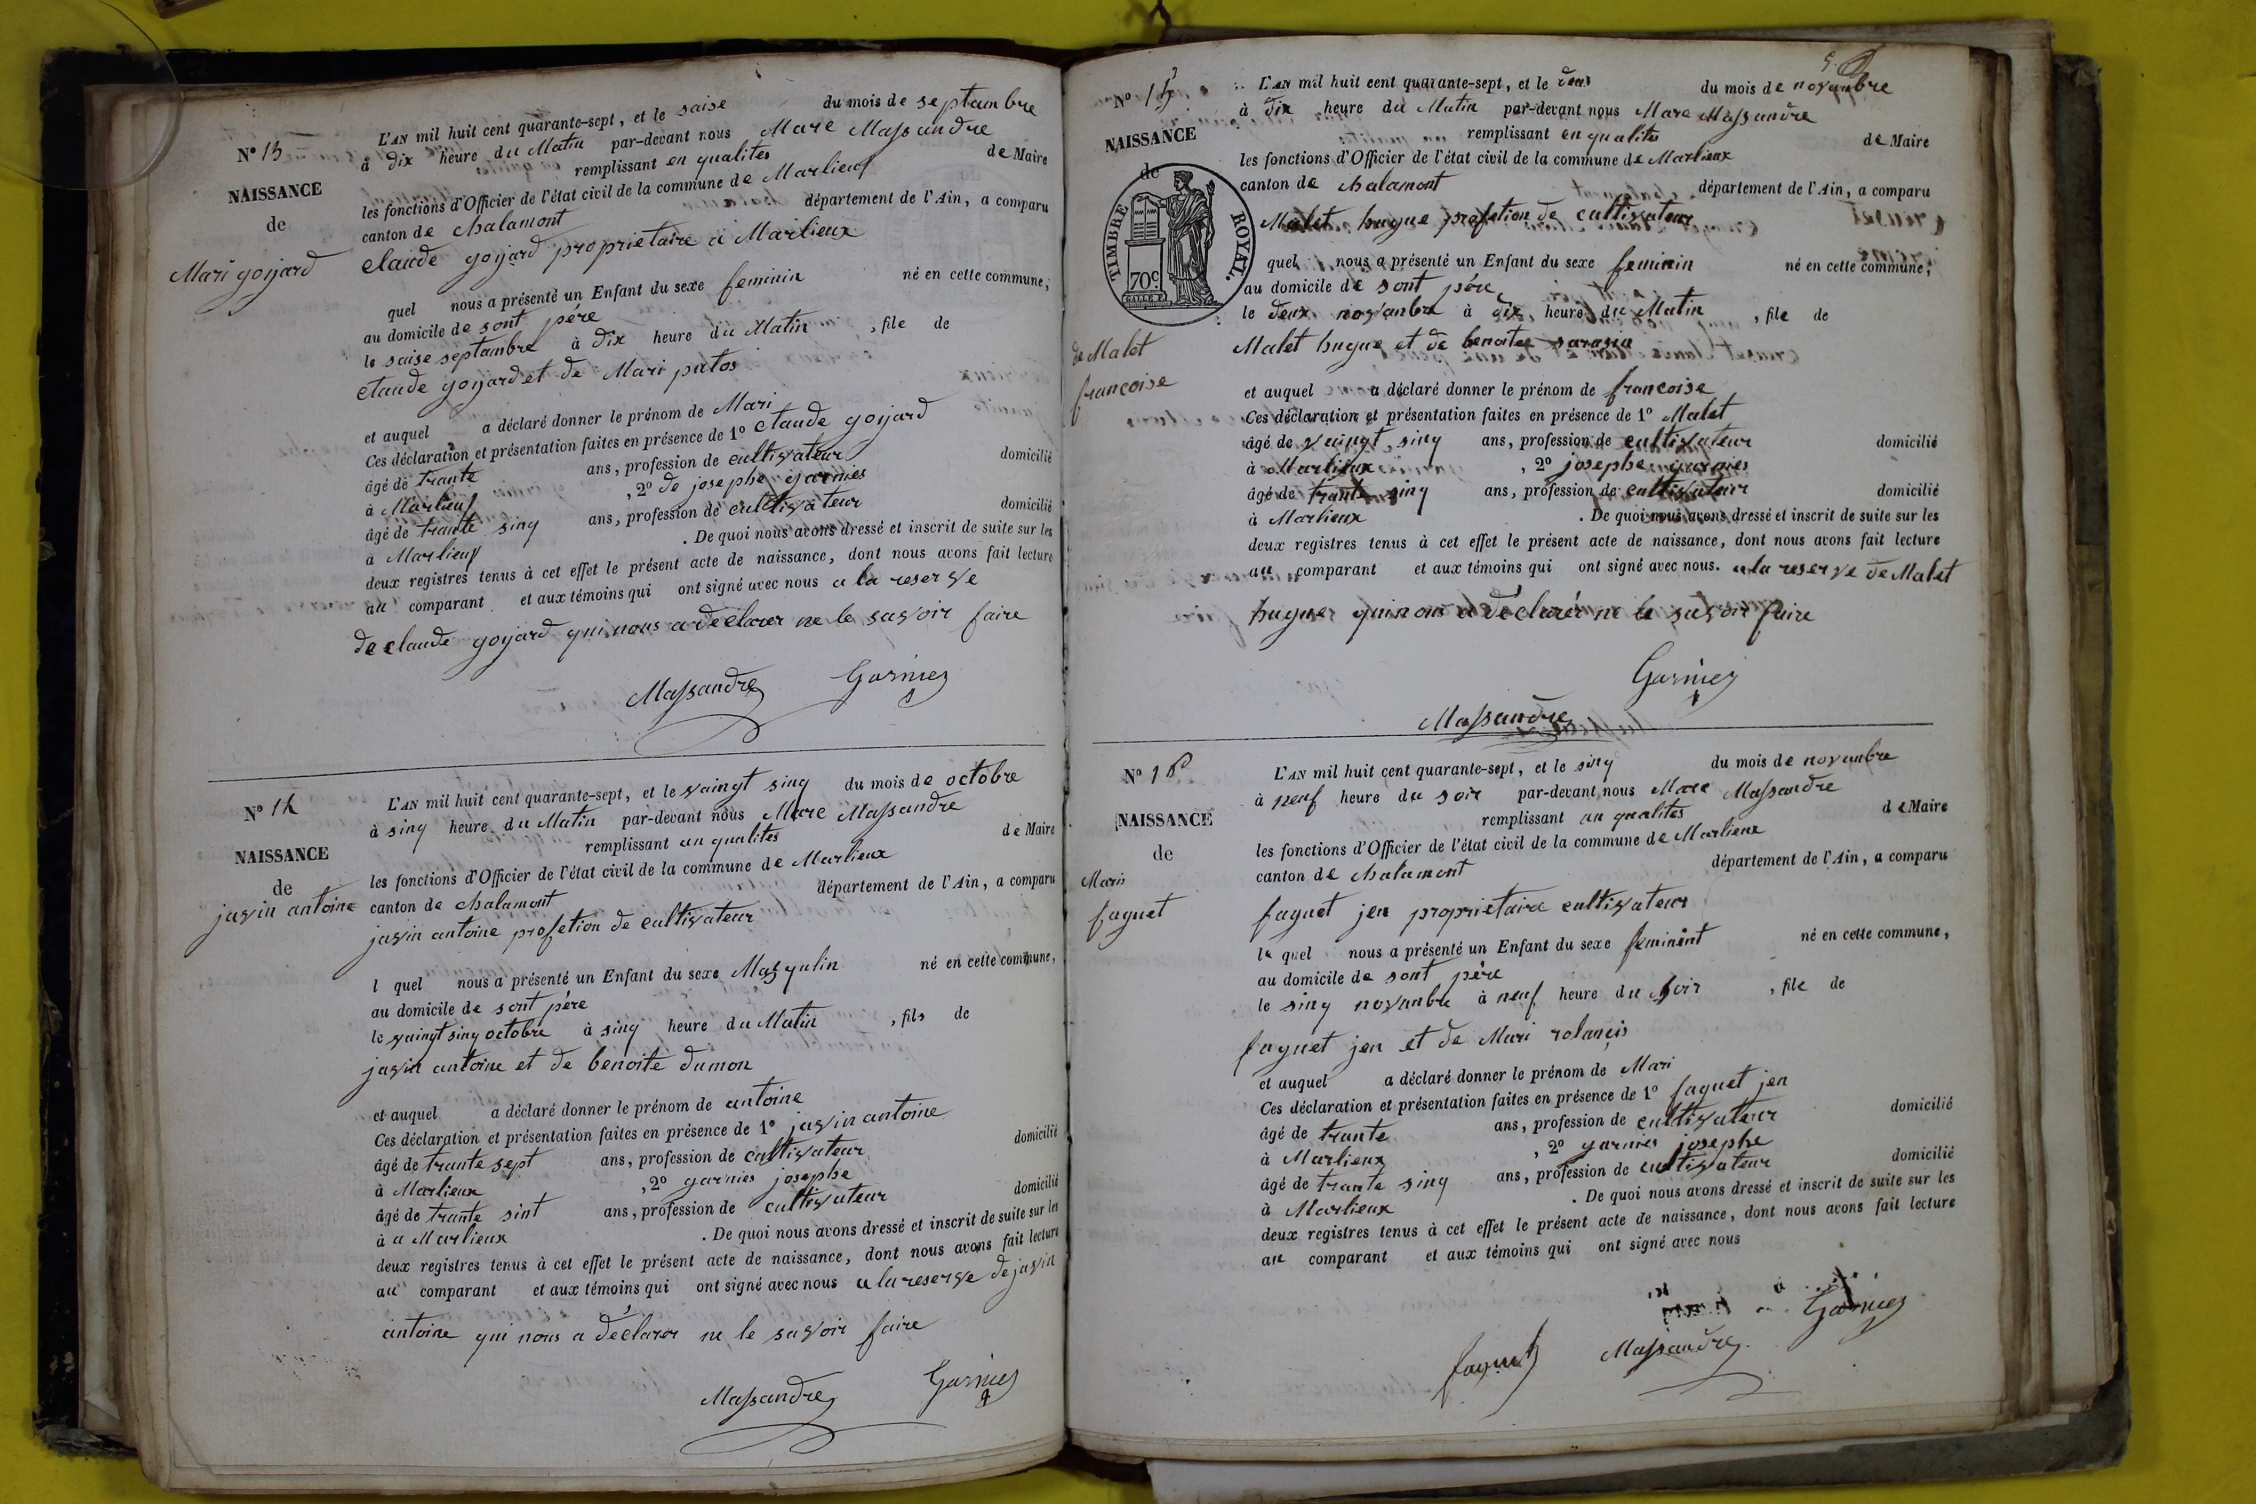 N° 13
NAISSANCE
de
Mari goyard
L'AN mil huit cent quarante-sept, et le saise du mois de septambre
à dix heure du Matin par-devant nous Mare Massandre
remplissant en qualites de Maire
les fonctions d'Officier de l'état civil de la commune de Marlieux
canton de chalamont département de l'Ain, a comparu
claude goyard proprietaire a Marlieux
quel nous a présenté un Enfant du sexe feminin né en cette commune,
au domicile de sont pére
le saise septambre à dix heure du Matin , file de
claude goyard et de Mari putos
et auquel a déclaré donner le prénom de Mari
Ces déclaration et présentation faites en présence de 1° claude goyard
âgé de trante ans, profession de cultivateur domicilié
à Marlieux , 2° de josephe garnier
âgé de trante sinq ans, profession de cultivateur domicilié
à Marlieux . De quoi nous avons dressé et inscrit de suite sur les
deux registres tenus à cet effet le présent acte de naissance, dont nous avons fait lecture
au comparant et aux témoins qui ont signé avec nous a la reserve
de claude goyard qui nous a declarer ne le savoir faire
Massandre Garnier
N° 14
NAISSANCE
de
javin antoine
L'AN mil huit cent quarante-sept, et le vaingt sinq du mois de octobre
à sinq heure du Matin par-devant nous Mare Massandre
remplissant an qualites de Maire
les fonctions d'Officier de l'état civil de la commune de Marlieux
canton de chalamont département de l'Ain, a comparu
javin antoine profetion de cultivateur
l quel nous a présenté un Enfant du sexe Masqulin né en cette commune,
au domicile de sont pére
le vaingt sinq octobre à sinq heure du Matin , fils de
javin antoine et de benoite dumon
et auquel a déclaré donner le prénom de antoine
Ces déclaration et présentation faites en présence de 1° javin antoine
âgé de trante sept ans, profession de cultivateur domicilié
à Marlieux , 2° garnier josephe
âgé de trante sint ans, profession de cultivateur domicilié
à a Marlieux . De quoi nous avons dressé et inscrit de suite sur les
deux registres tenus à cet effet le présent acte de naissance, dont nous avons fait lecture
au comparant et aux témoins qui ont signé avec nous a la reserve de javin
antoine qui nous a déclarer ne le savoir faire
Massandre Garnier
N° 15
NAISSANCE
de
TIMBRE ROYAL.
70c
de Malet
francoise
L'AN mil huit cent quarante-sept, et le deux du mois de novanbre
à dix heure du Matin par-devant nous Mare Massandre
remplissant en qualites de Maire
les fonctions d'Officier de l'état civil de la commune de Marlieux
canton de chalamont département de l'Ain, a comparu
Malet hugue profetion de cultivateur
quel nous a présenté un Enfant du sexe feminin né en cette commune,
au domicile de sont pére
le deux novanbre à dix heure du Matin , file de
Malet hugue et de benoite sarasin
et auquel a déclaré donner le prénom de francoise
Ces déclaration et présentation faites en présence de 1° Malet
âgé de vaingt sinq ans, profession de cultivateur domicilié
à Marlieux , 2° josephe garnier
âgé de trante sinq ans, profession de cultivateur domicilié
à Marlieux . De quoi nous avons dressé et inscrit de suite sur les
deux registres tenus à cet effet le présent acte de naissance, dont nous avons fait lecture
au comparant et aux témoins qui ont signé avec nous. a la reserve de Malet
hugue qui nous a déclarér ne le savoir faire
Garnier
Massandre
N° 16
NAISSANCE
de
Mari
faguet
L'AN mil huit cent quarante-sept, et le sinq du mois de novanbre
à neuf heure du soir par-devant nous Mare Massandre
remplissant an qualites de Maire
les fonctions d'Officier de l'état civil de la commune de Marlieux
canton de chalamont département de l'Ain, a comparu
faguet jen proprietaire cultivateur
le quel nous a présenté un Enfant du sexe feminint né en cette commune,
au domicile de sont père
le sinq novanbre à neuf heure du soir , file de
faguet jen et de Mari rolancis
et auquel a déclaré donner le prénom de Mari
Ces déclaration et présentation faites en présence de 1° faguet jen
âgé de trante ans, profession de cultivateur domicilié
à Marlieux , 2° garnier josephe
âgé de trante sinq ans, profession de cultivateur domicilié
à Marlieux . De quoi nous avons dressé et inscrit de suite sur les
deux registres tenus à cet effet le présent acte de naissance, dont nous avons fait lecture
au comparant et aux témoins qui ont signé avec nous
faguet Massandre Garnier